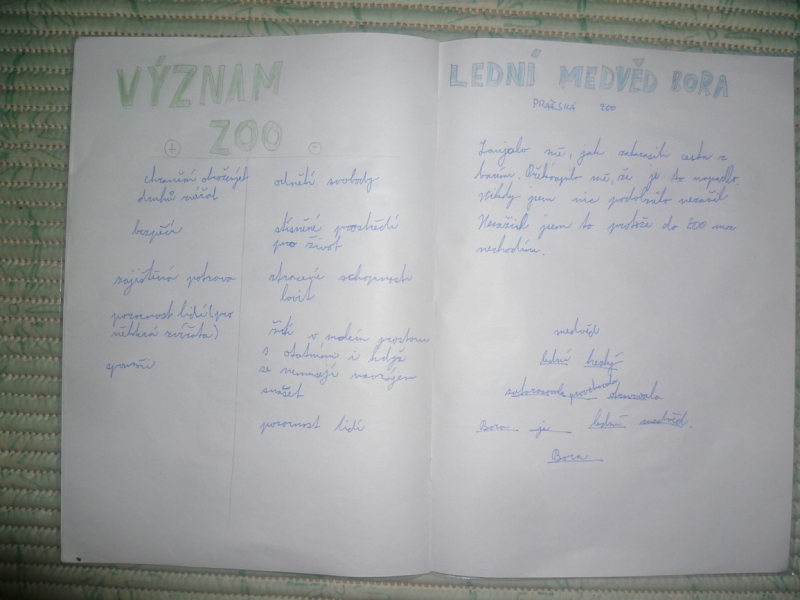 VÝZNAM
ZOO
+
-
chránění ohrožených
druhů zvířat
bezpečí
zajištěná potrava
pozornost lidí (pro
některá zvířata)
odnětí svobody
stísněné prostředí
pro život
ztracejí schopnosti
lovit
žití v malém prostoru
s ostatními i když
se nemusejí navzájem
snášet
pozornost lidí
LEDNÍ MEDVĚD BORA
PRAŽSKÁ ZOO
Zaujalo mě, jak cesta s
bazém. Překvapilo mě, že je to napadlo.
Nikdy jsem nic podobného nezažil
Nezažil jsem to protože do ZOO moc
nechodím.
medvěd
lední hezký
dováděla
Bora je lední medvěd.
Bora